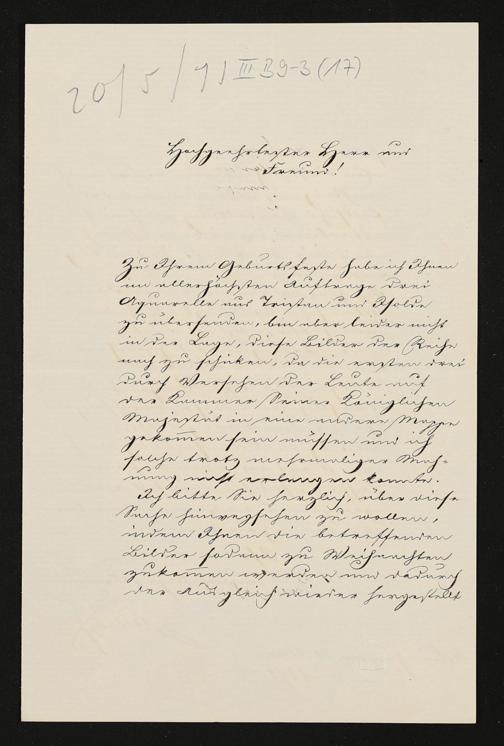 20/5/71 III B 9-3 (17)
Hochgeehrtester Herr und
Freund!
Zu Ihrem Geburtsfeste habe ich Ihnen
im allerhöchsten Auftrage drei
Aquarelle aus Tristan und Isolde
zu übersenden, bin aber leider nicht
in der Lage, diese Bilder der Reihe
nach zu schicken, da die ersten drei
durch Versehen der Leute auf
der Kammer Seiner Königlichen
Majestät in eine andere Mappe
gekommen sein müssen und ich
solche trotz mehrmaliger Mah-
nung nicht erlangen konnte.
Ich bitte Sie herzlich, über diese
Sache hinwegsehen zu wollen,
indem Ihnen die betreffenden
Bilder sodann zu Weihnachten
zukommen werden und dadurch
der Ausgleich wieder hergestellt